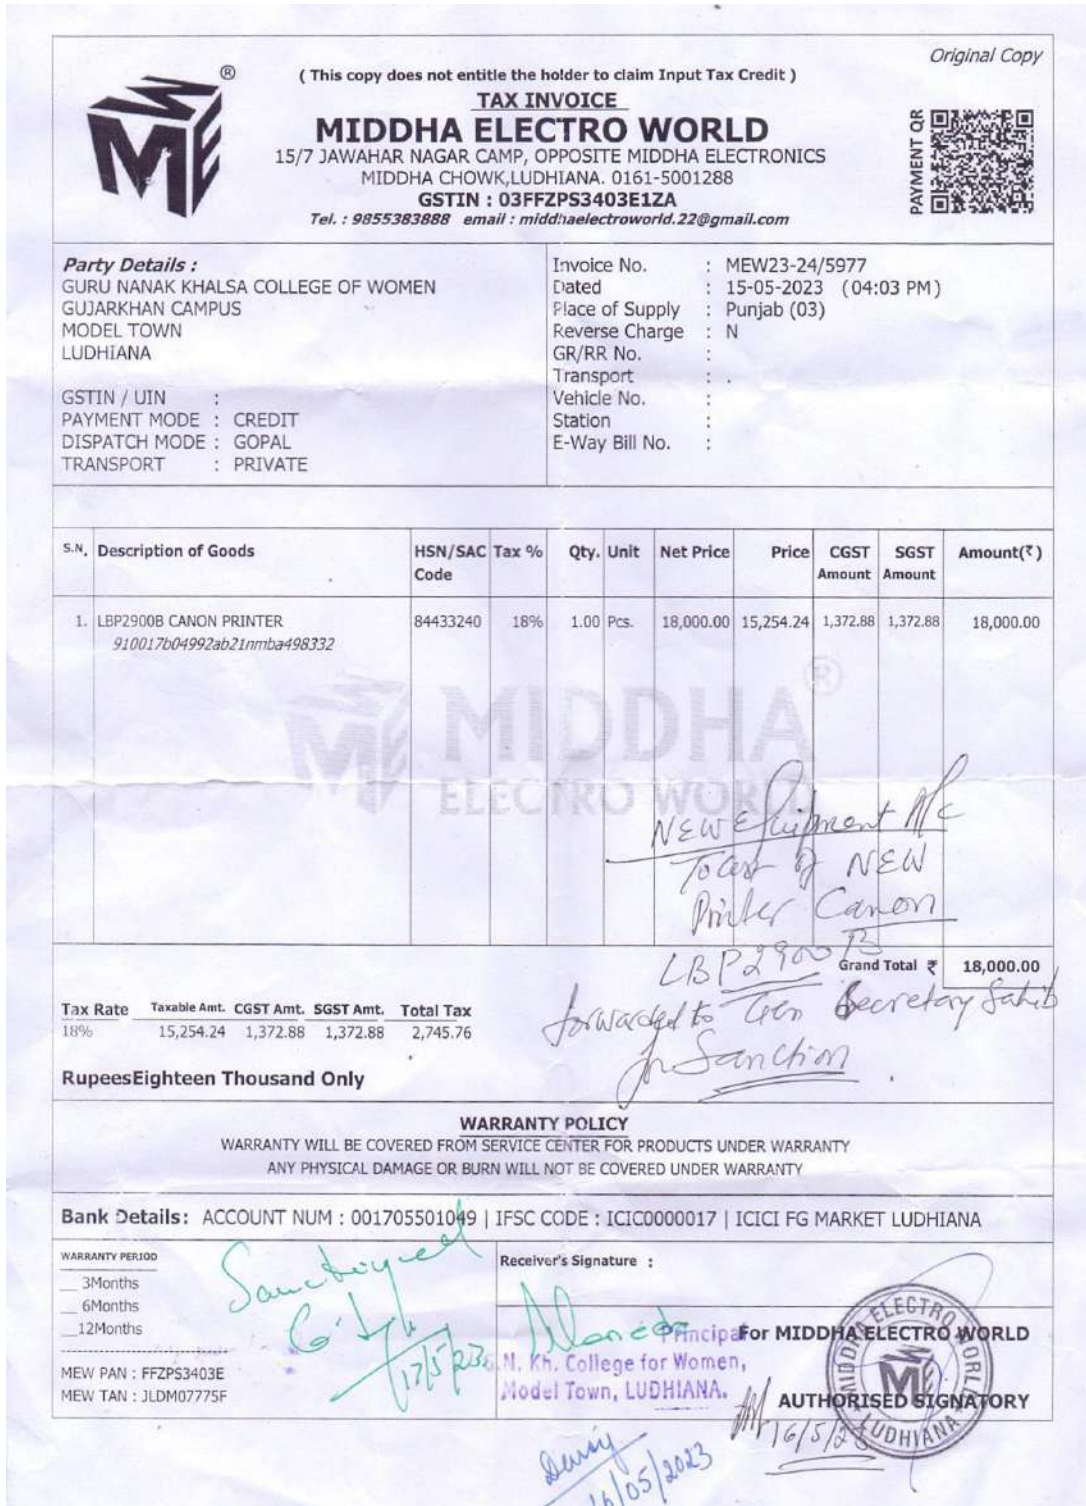 Original Copy
( This copy does not entitle the holder to claim Input Tax Credit )
TAX INVOICE
MIDDHA ELECTRO WORLD
15/7 JAWAHAR NAGAR CAMP, OPPOSITE MIDDHA ELECTRONICS
MIDDHA CHOWK,LUDHIANA. 0161-5001288
GSTIN : 03FFZPS3403E1ZA
Tel. : 9855383888 email : middhaelectroworld.22@gmail.com
ME ®
PAYMENT QR
Party Details :
GURU NANAK KHALSA COLLEGE OF WOMEN
GUJARKHAN CAMPUS
MODEL TOWN
LUDHIANA
GSTIN / UIN :
PAYMENT MODE : CREDIT
DISPATCH MODE : GOPAL
TRANSPORT : PRIVATE
Invoice No. : MEW23-24/5977
Dated : 15-05-2023 (04:03 PM)
Place of Supply : Punjab (03)
Reverse Charge : N
GR/RR No. :
Transport :
Vehicle No. :
Station :
E-Way Bill No. :
S.N. Description of Goods HSN/SAC Code Tax % Qty. Unit Net Price Price CGST Amount SGST Amount Amount(₹)
1. LBP2900B CANON PRINTER 84433240 18% 1.00 Pcs. 18,000.00 15,254.24 1,372.88 1,372.88 18,000.00
910017b04992ab21nmba498332
ME MIDDHA ®
ELECTRO WORLD
NEW Equipment A/c
To cost of NEW
Printer Canon
LBP2900B
Grand Total ₹ 18,000.00
forwarded to Gen Secretary Sahib
for Sanction
Tax Rate Taxable Amt. CGST Amt. SGST Amt. Total Tax
18% 15,254.24 1,372.88 1,372.88 2,745.76
RupeesEighteen Thousand Only
WARRANTY POLICY
WARRANTY WILL BE COVERED FROM SERVICE CENTER FOR PRODUCTS UNDER WARRANTY
ANY PHYSICAL DAMAGE OR BURN WILL NOT BE COVERED UNDER WARRANTY
Bank Details: ACCOUNT NUM : 001705501049 | IFSC CODE : ICIC0000017 | ICICI FG MARKET LUDHIANA
WARRANTY PERIOD
__ 3Months
__ 6Months
__12Months
MEW PAN : FFZPS3403E
MEW TAN : JLDM07775F
Sanctioned
17/5/23
Receiver's Signature :
Principal
G.N. Kh. College for Women,
Model Town, LUDHIANA.
For MIDDHA ELECTRO WORLD
AUTHORISED SIGNATORY
MIDDHA ELECTRO WORLD
ME
LUDHIANA
16/5/23
16/05/2023